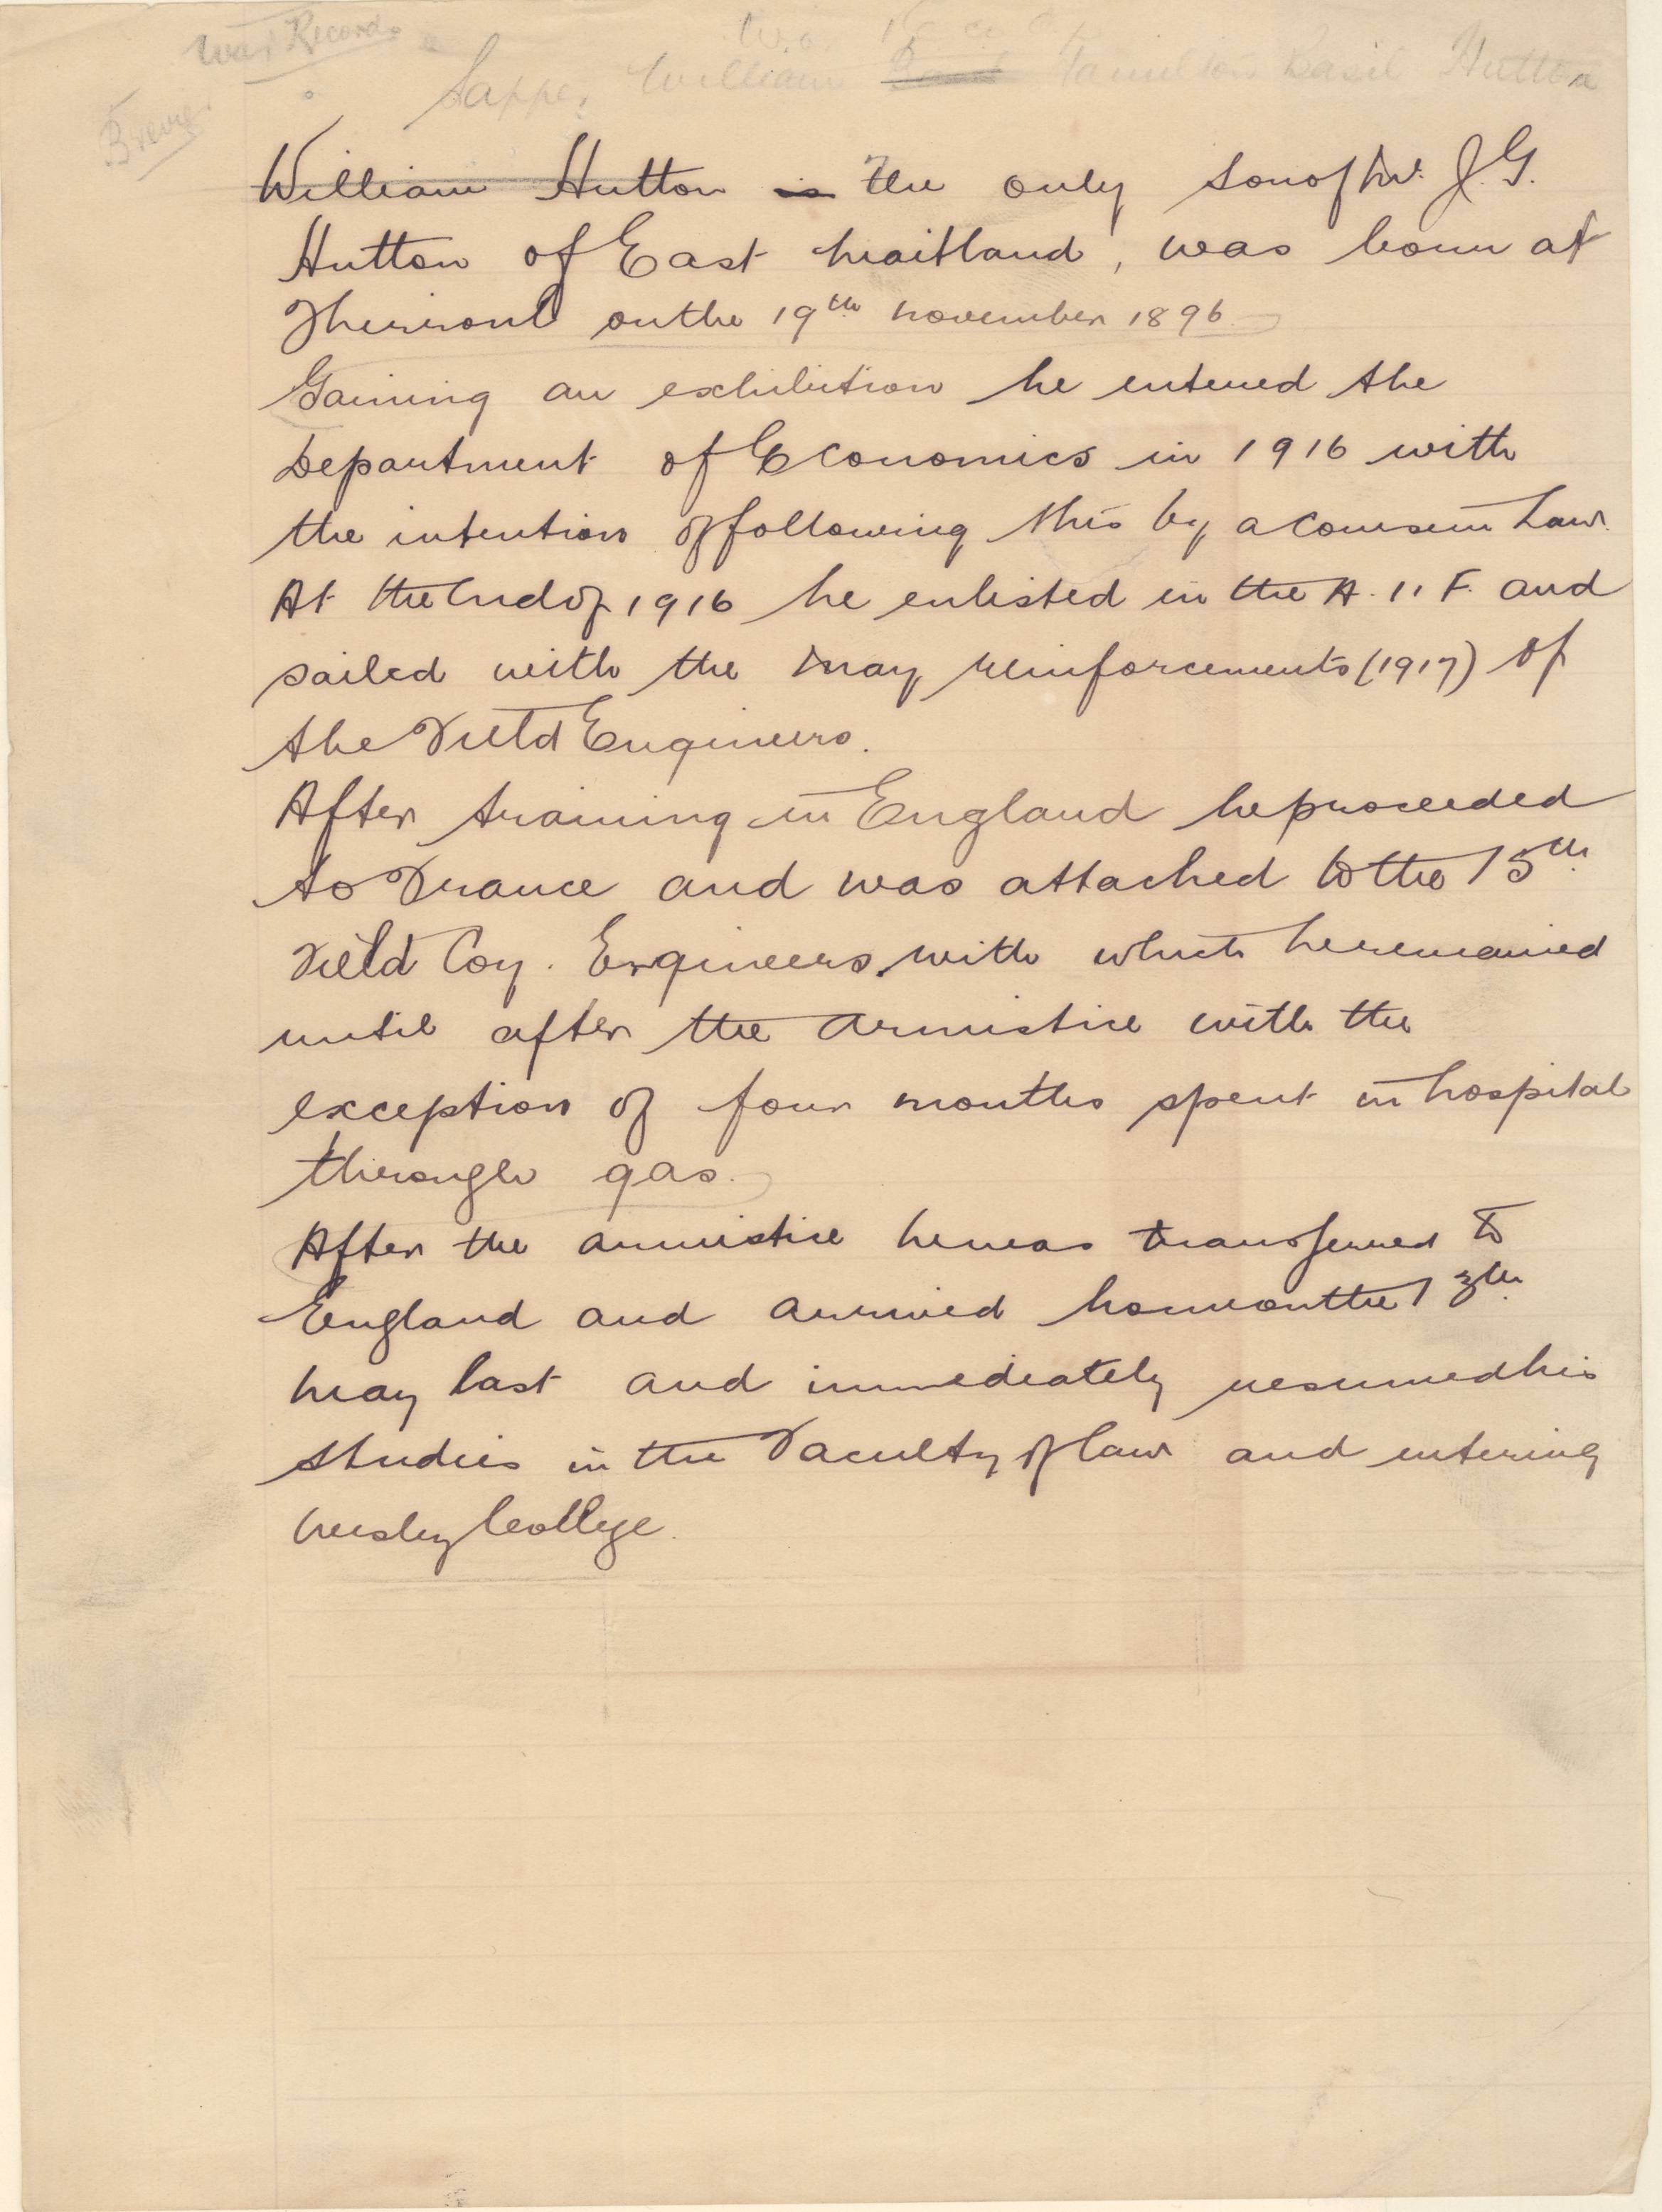 War Records
Brevier
Sapper William Hamilton Basil Hutton
William Hutton is The only son of Mr. J. G.
Hutton of East Maitland, was born at
Thirroul on the 19th November 1896
Gaining an exhibition he entered the
Department of Economics in 1916 with
the intention of following this by a course in Law.
At the End of 1916 he enlisted in the A.I.F. and
sailed with the May reinforcements (1917) of
the Field Engineers.
After training in England he proceeded
to France and was attached to the 15th
Field Coy. Engineers, with which he remained
until after the Armistice with the
exception of four months spent in hospital
through gas.
After the armistice he was transferred to
England and arrived home on the 13th
May last and immediately resumed his
studies in the Faculty of Law and entering
Wesley College.